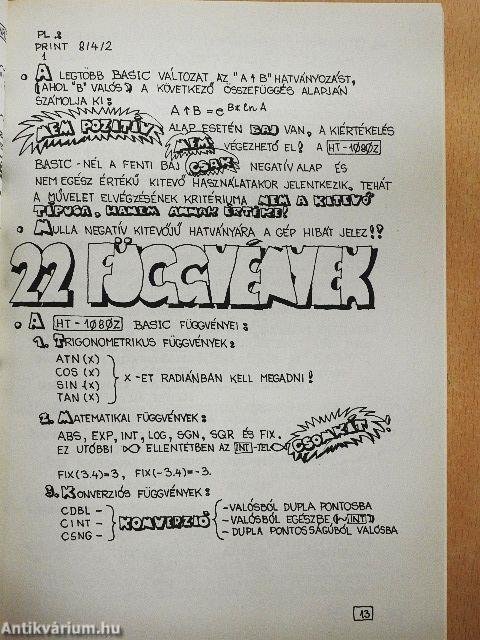 PL. 8
PRINT 8/4/2
1
• A LEGTÖBB BASIC VÁLTOZAT AZ "A↑B" HATVÁNYOZÁST,
(AHOL "B" VALÓS) A KÖVETKEZŐ ÖSSZEFÜGGÉS ALAPJÁN
SZÁMOLJA KI:
A↑B = e^B*ln A
NEM POZITÍV ALAP ESETÉN BAJ VAN, A KIÉRTÉKELÉS
NEM VÉGEZHETŐ EL! A HT-1080Z
BASIC-NÉL A FENTI BAJ CSAK NEGATÍV ALAP ÉS
NEM EGÉSZ ÉRTÉKŰ KITEVŐ HASZNÁLATAKOR JELENTKEZIK, TEHÁT
A MŰVELET ELVÉGZÉSÉNEK KRITÉRIUMA NEM A KITEVŐ
TÍPUSA, HANEM ANNAK ÉRTÉKE!
• NULLA NEGATÍV KITEVŐJŰ HATVÁNYÁRA A GÉP HIBÁT JELEZ!?
22 FÜGGVÉNYEK
• A HT-1080Z BASIC FÜGGVÉNYEI:
1. TRIGONOMETRIKUS FÜGGVÉNYEK:
ATN (X)
COS (X)
SIN (X)
TAN (X)
X-ET RADIÁNBAN KELL MEGADNI!
2. MATEMATIKAI FÜGGVÉNYEK:
ABS, EXP, INT, LOG, SGN, SQR ÉS FIX.
EZ UTÓBBI ELLENTÉTBEN AZ INT-TEL CSONKÍT!
FIX(3.4)=3, FIX(-3.4)=-3.
3. KONVERZIÓS FÜGGVÉNYEK:
CDBL - KONVERZIÓ - VALÓSBÓL DUPLA PONTOSBA
CINT - - VALÓSBÓL EGÉSZBE (~INT)
CSNG - - DUPLA PONTOSSÁGÚBÓL VALÓSBA
13
Antikvárium.hu